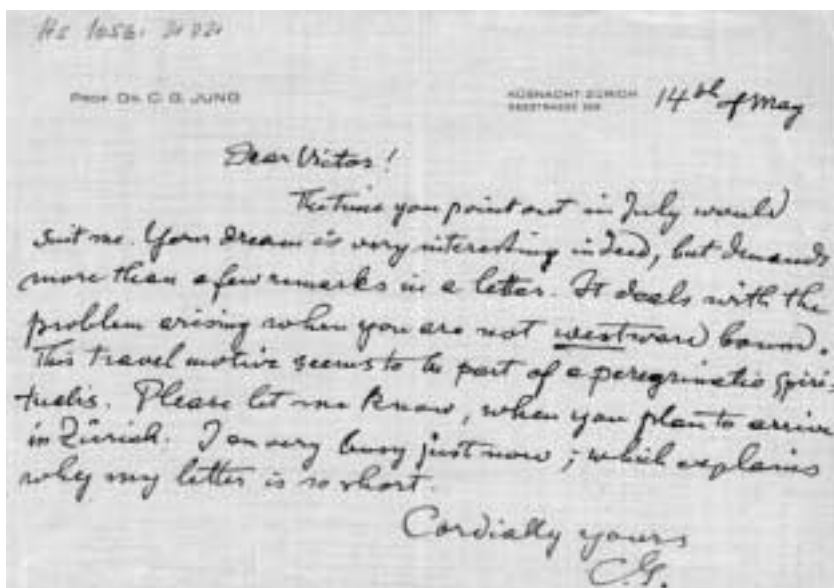 Hs 1056:
PROF. DR. C. G. JUNG
KÜSNACHT-ZÜRICH
SEESTRASSE
14th of May
Dear Victor!
The time you point out in July would
suit me. Your dream is very interesting indeed, but demands
more than a few remarks in a letter. It deals with the
problem arising when you are not westward bound.
This travel motive seems to be part of a peregrinatio spiri-
tualis. Please let me know, when you plan to arrive
in Zürich. I am very busy just now; which explains
why my letter is so short.
Cordially yours
C.G.